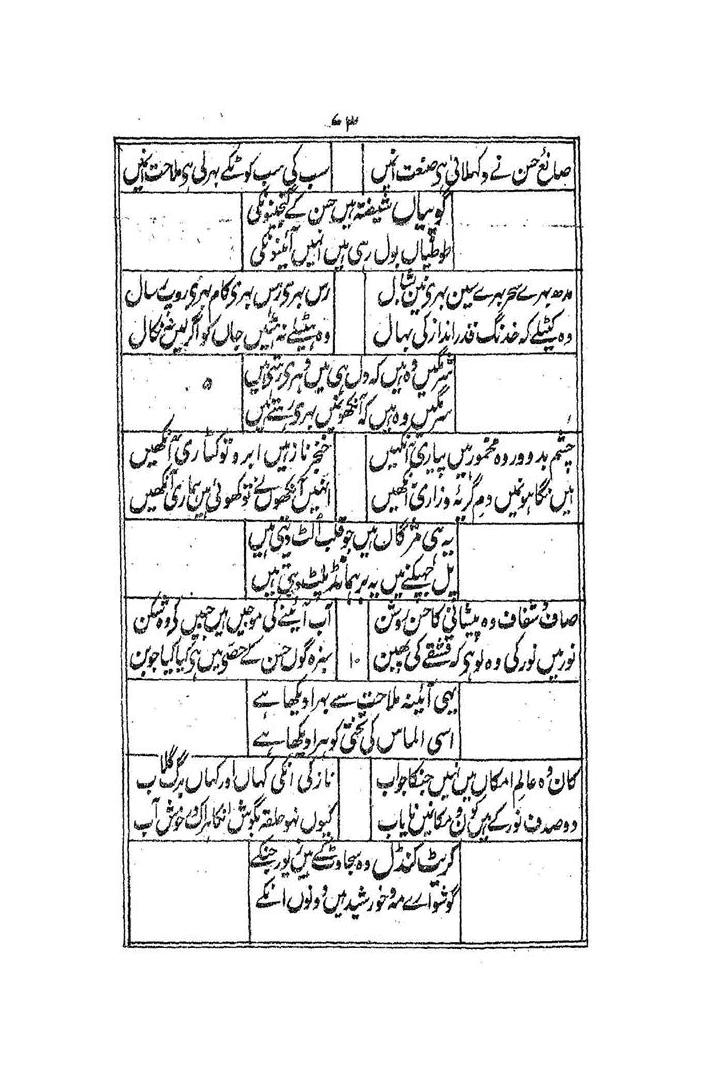 ۷۳
صانع حسن نے دکھلائی ہی صنعت انہیں
سب کی سب کوٹ کے بہر لی ہی ملاحت انہیں
گوپیاں شیفتہ ہیں حسن کے گنجینونکی
طوطیاں بول رہی ہیں انہیں آئینونکی
مدھ بہرے سحر بہرے سین بہری نین بشال
رس بہری رس بہری کام بہری روپ رسال
وہ کٹیلے کہ خدنگ قدر انداز کی بہال
وہ ہٹیلے نہ ہٹیں جاں کو اگر لیں نکال
شرمگیں وہ ہیں کہ دل ہی میں وہری رہتی ہیں
سرمگیں وہ ہیں کہ آنکھونمیں بہری رہتے ہیں
۵
چشم بد دور وہ مخمور ہیں پیاری آنکھیں
خنجر ناز ہیں ابرو تو کٹاری آنکھیں
ہیں نگاہونمیں دم گریۂ و زاری آنکھیں
انہیں آنکھوں نے تو کھوئی ہیں ہماری آنکھیں
یہ ہی مژگاں ہیں جو قلب الٹ دیتی ہیں
پل جھپکنے میں یہ برہمانڈ پلٹ دیتی ہیں
صاف و شفاف وہ پیشانی کا حسن روشن
آب آئینے کی موجیں ہیں جبیں کی وہ شکن
نور میں نور کی وہ لو ہی کہ قشقے کی پھبن
۱۰
سبزہ گوں حسن کے حصے میں ہی کیا کیا جوبن
یہی آئینہ ملاحت سے بہرا دیکھا ہے
اسی الماس کی تختی کو ہرا دیکھا ہے
کان وہ عالم امکاں میں نہیں جنکا جواب
نازکی انکی کہاں اور کہاں برگ گلاب
دو صدف نور کے ہیں کون و مکانمیں نایاب
کیوں نہو حلقہ بگوش انکا ہر اک در خوش آب
کریٹ کنڈل وہ سجاوٹ کے ہیں پور جنکے
گوشوارے مہ و خورشید ہیں دونوں انکے